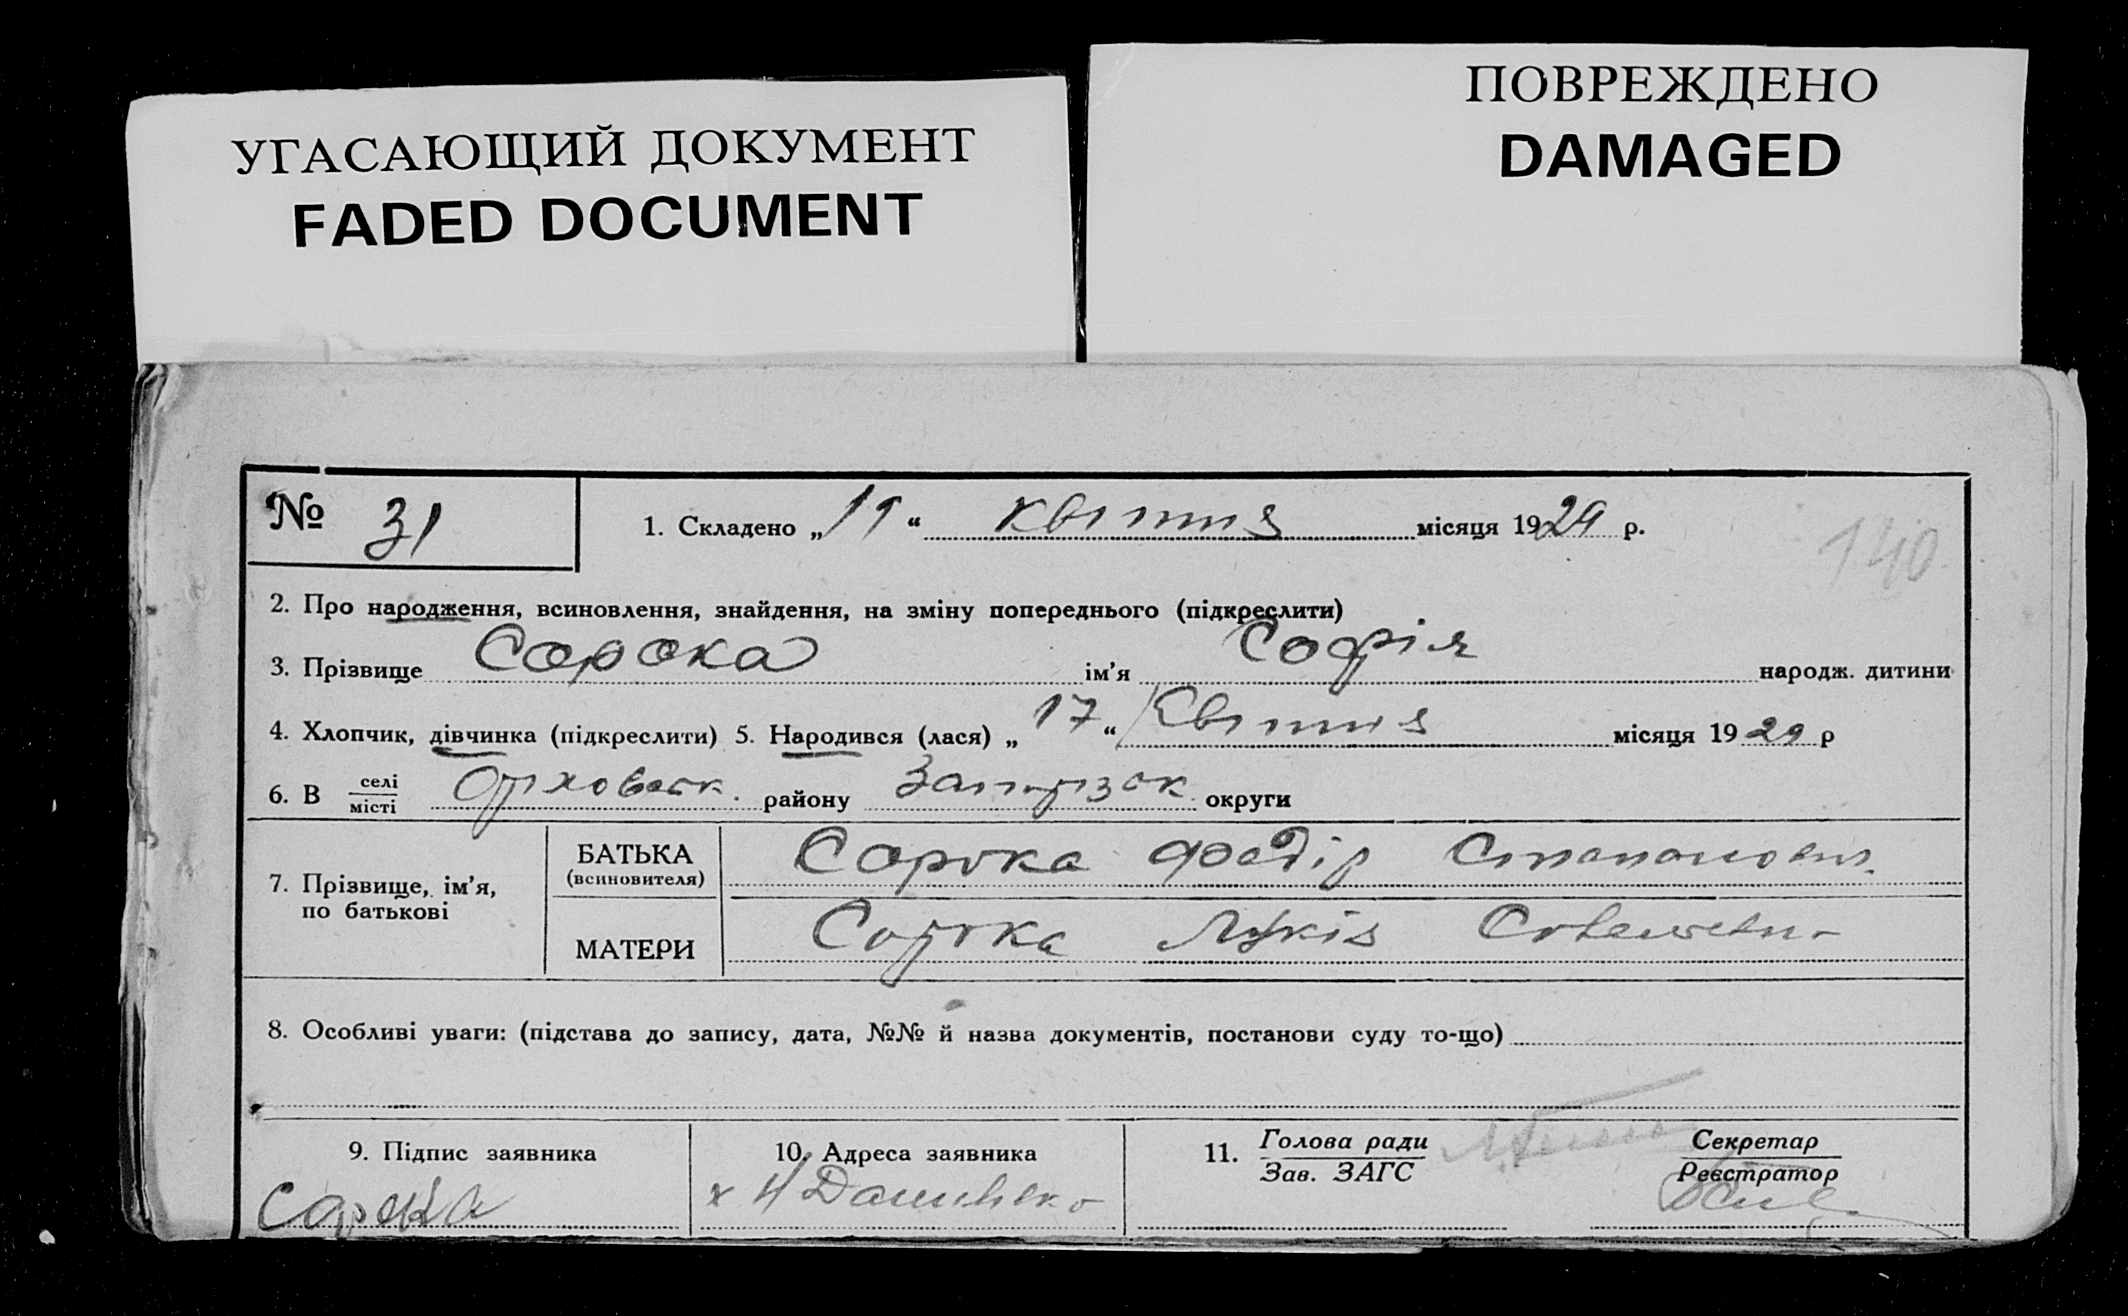 УГАСАЮЩИЙ ДОКУМЕНТ
FADED DOCUMENT
ПОВРЕЖДЕНО
DAMAGED
№ 31
1. Складено „19“ квітня місяця 1929 р.
140
2. Про народження, всиновлення, знайдення, на зміну попереднього (підкреслити)
3. Прізвище Сорока ім’я Софія народж. дитини
4. Хлопчик, дівчинка (підкреслити) 5. Народився (лася) „17“ Квітня місяця 1929 р
6. В селі/місті Оріховськ. району Запорізьк. округи
7. Прізвище, ім’я, по батькові
БАТЬКА (всиновителя) Сорока Федір
МАТЕРИ Сорока Лукія
8. Особливі уваги: (підстава до запису, дата, №№ й назва документів, постанови суду то-що)
9. Підпис заявника
Сорока
10. Адреса заявника
х Н
11. Голова ради
Зав. ЗАГС
Секретар
Реєстратор